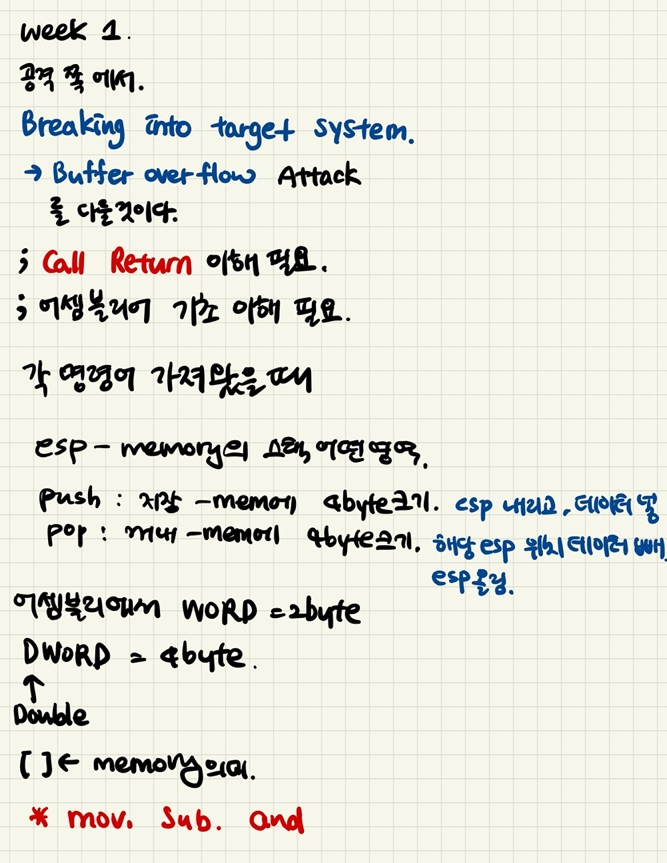 week 1.
공격 쪽에서.
Breaking into target system.
→ Buffer overflow Attack
를 다룰것이다.
; Call Return 이해 필요.
; 어셈블리어 기초 이해 필요.
각 명령어 가져왔을때
esp - memory의 스택, 어떤영역.
push : 저장 -memo에 4byte크기. esp 내리고, 데이터 넣
pop : 꺼내 -memo에 4byte크기. 해당 esp 위치 데이터 빼,
esp올림.
어셈블리에서 WORD = 2byte
DWORD = 4byte.
↑
Double
[ ] ← memory의미.
* mov. sub. and